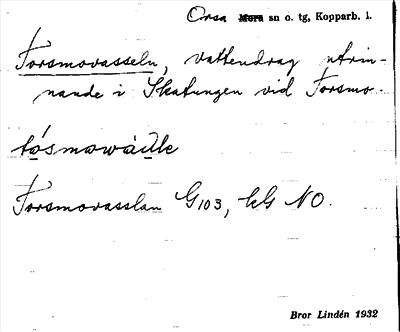 Orsa Mora sn o. tg, Kopparb. l.
Forsmovasseln, vattendrag utrin-
nande i Skatungen vid Forsmo.
Forsmovasslan G103, kG NO.
Bror Lindén 1932